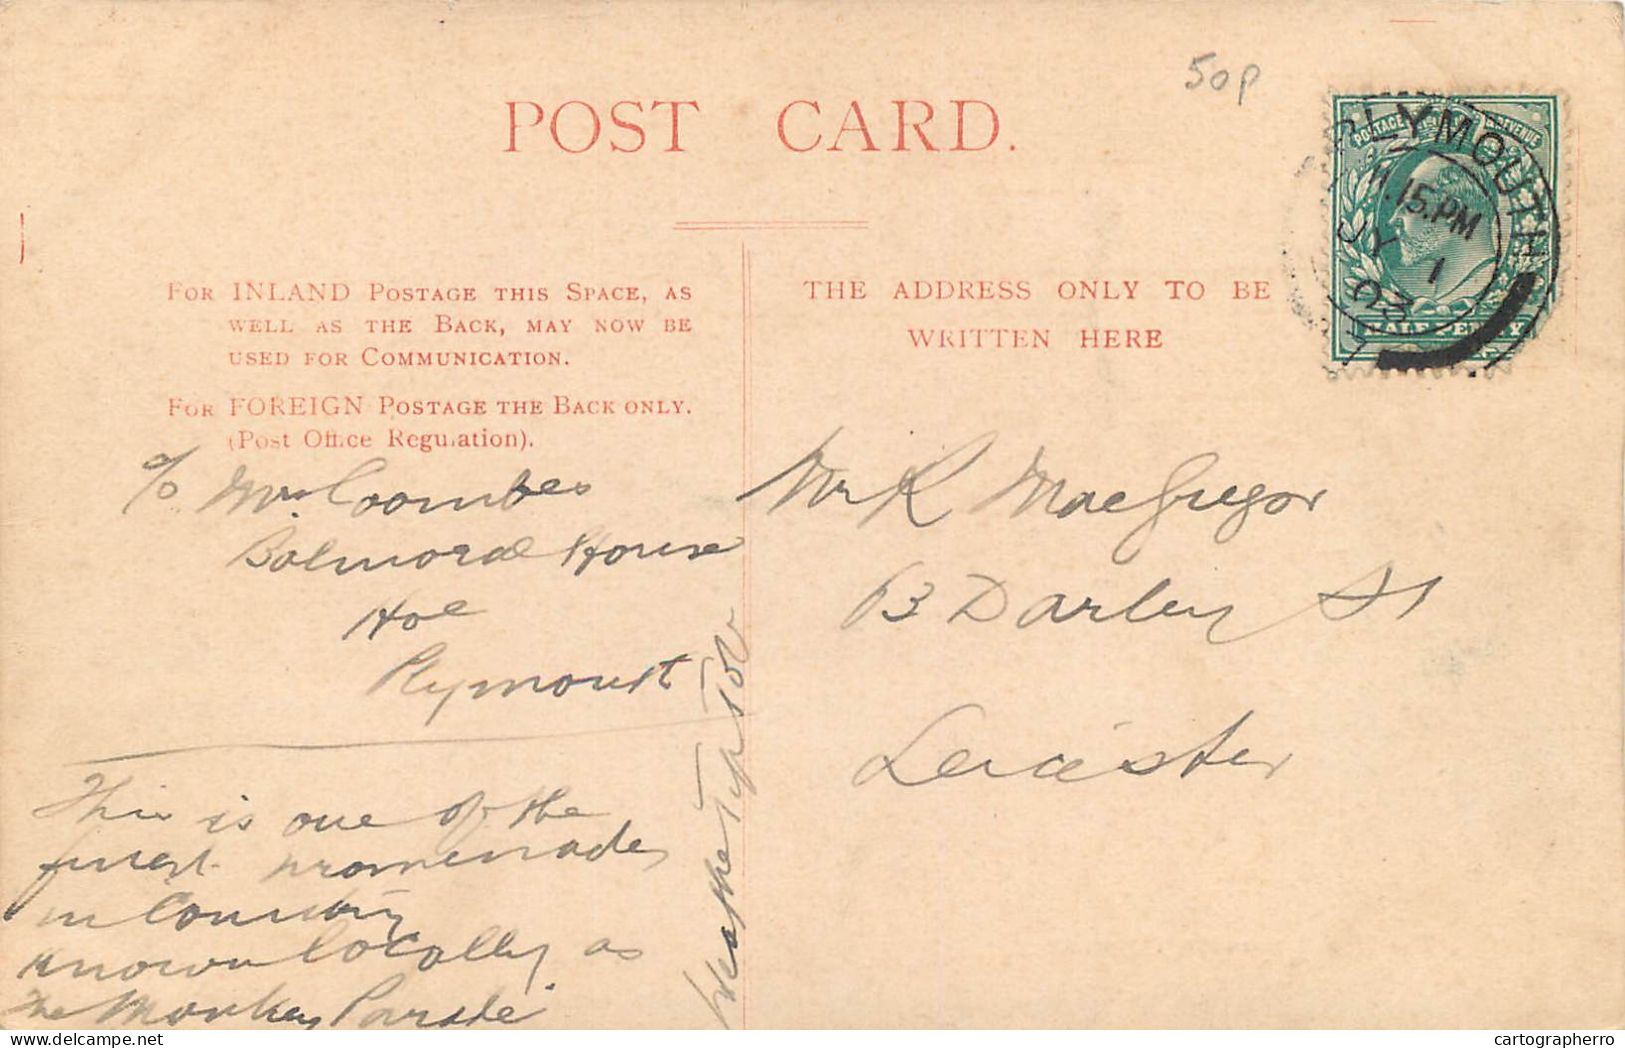 50p
POST CARD.
PLYMOUTH
11.15.PM
JY 1
03
POSTAGE REVENUE
HALF PENNY
FOR INLAND POSTAGE THIS SPACE, AS
WELL AS THE BACK, MAY NOW BE
USED FOR COMMUNICATION.
FOR FOREIGN POSTAGE THE BACK ONLY.
(Post Office Regulation).
THE ADDRESS ONLY TO BE
WRITTEN HERE
c/o Mrs Coombes
Balmoral House
Hoe
Plymouth
This is one of the
finest promenades
in Country
known locally as
the Monkey Parade
Weather Tip Top
Mr R MacGregor
63 Darley St
Leicester
cartographerro